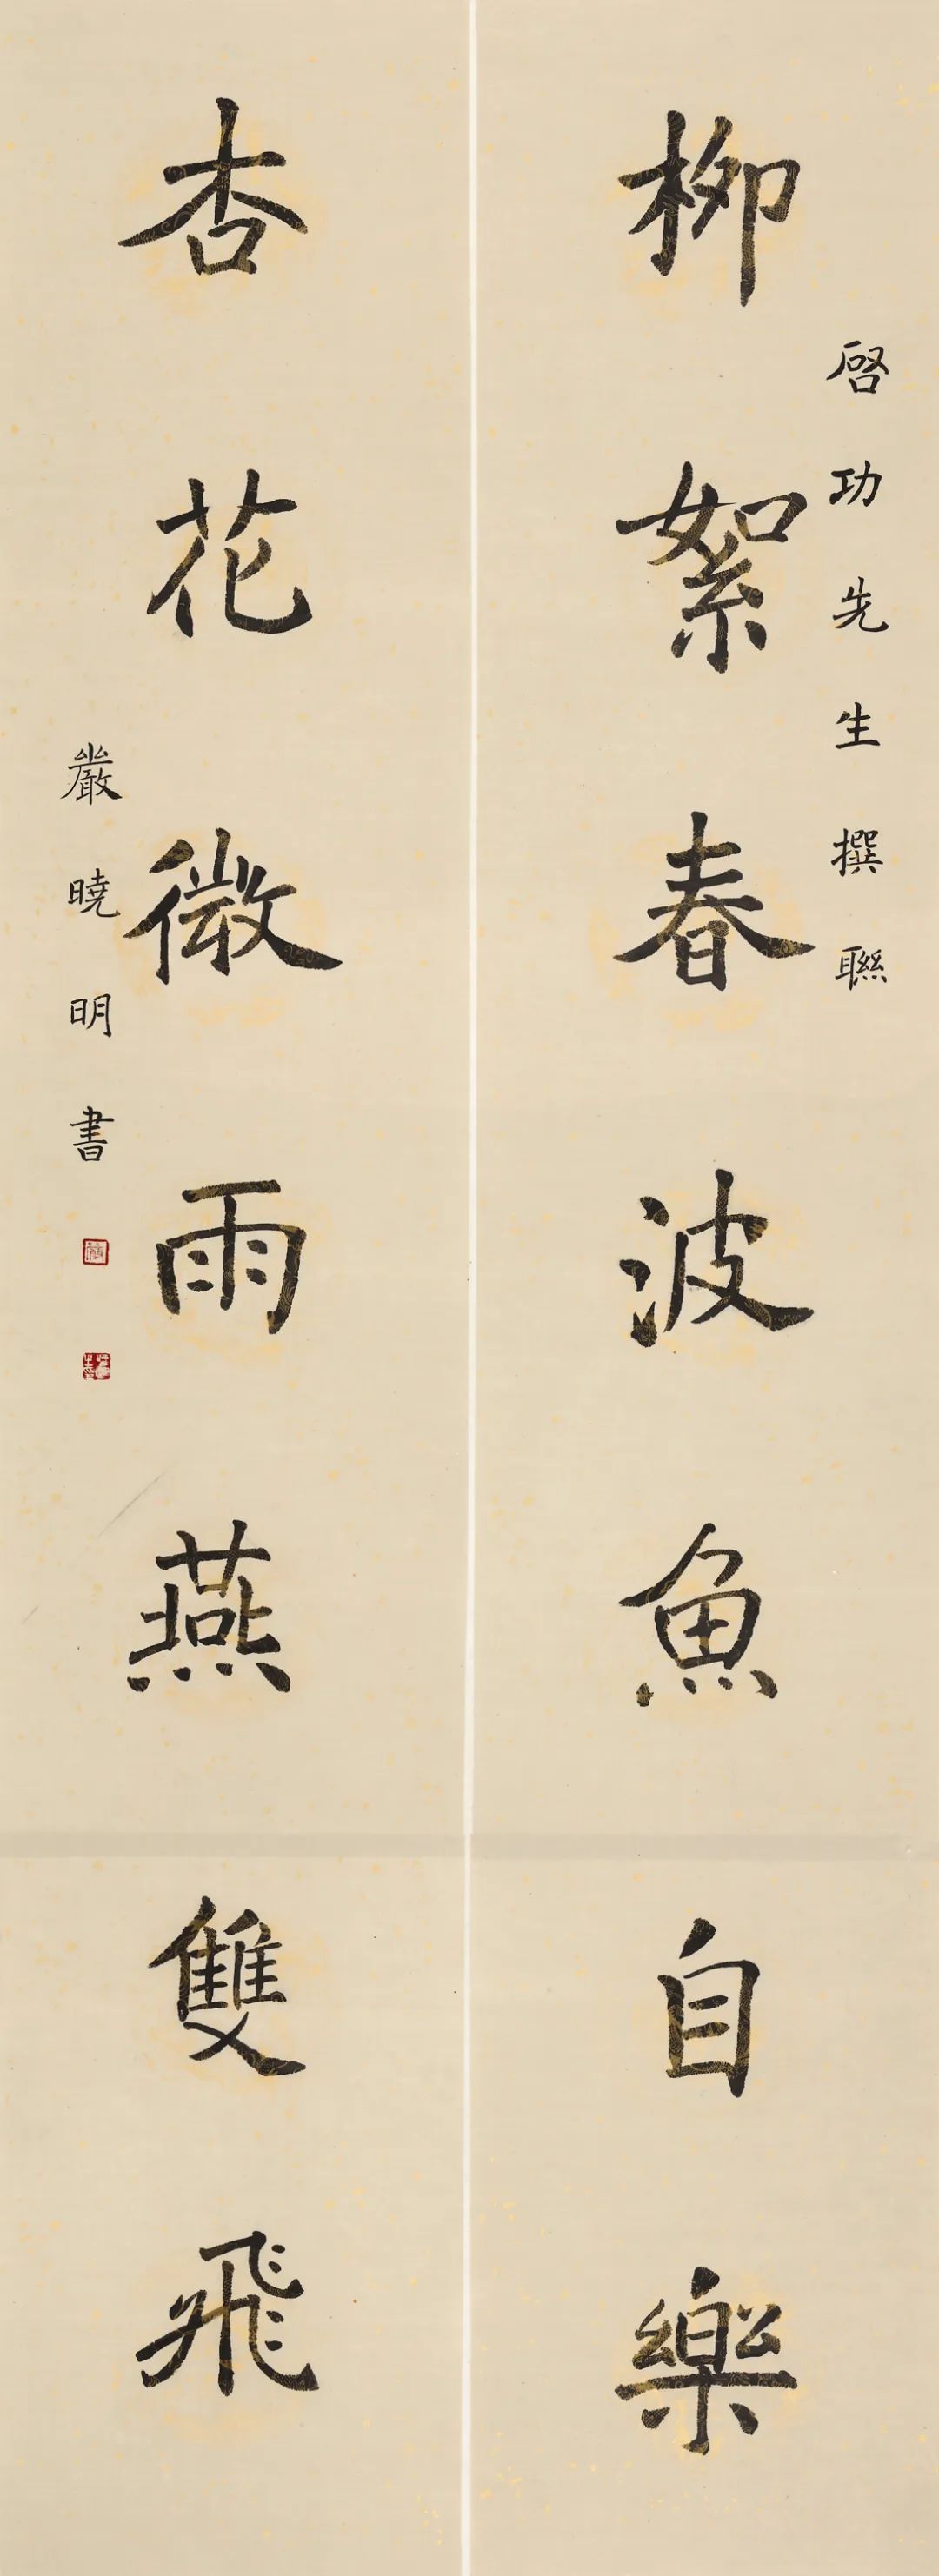 啓功先生撰聯
柳絮春波魚自樂
杏花微雨燕雙飛
嚴曉明書